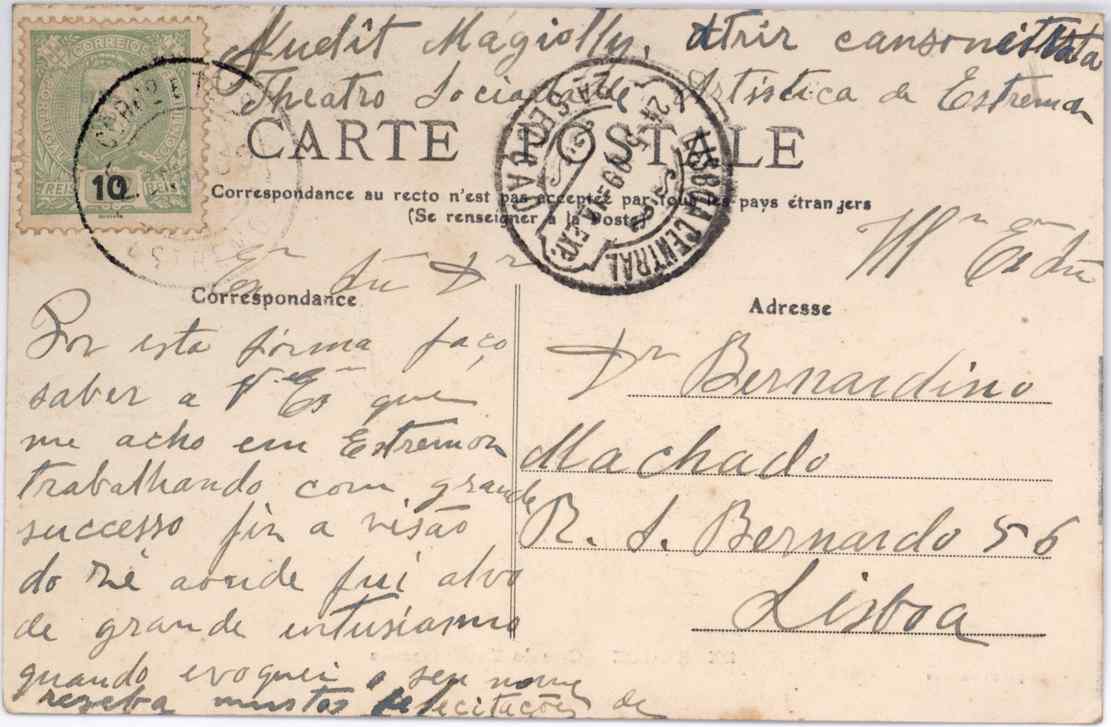 Nudit Magiolly, Atriz cansonetista
Theatro Sociedade Artistica de Estremoz
CORREIOS
REIS 10 REIS
CARTE POSTALE
Correspondance au recto n'est pas acceptée par tous les pays étrangers
(Se renseigner à la Poste)
2A SECÇÃO
LISBOA CENTRAL
Correspondance
Exmo Snr Dr
Por esta forma faço
saber a V. Exa que
me acho em Estremoz
trabalhando com grande
successo fiz a visão
do aonde fui alvo
de grande intusiasmo
quando evoquei o seu nome
receba muitas felicitações de
Adresse
Dr Bernardino
Machado
R. S. Bernardo 56
Lisboa